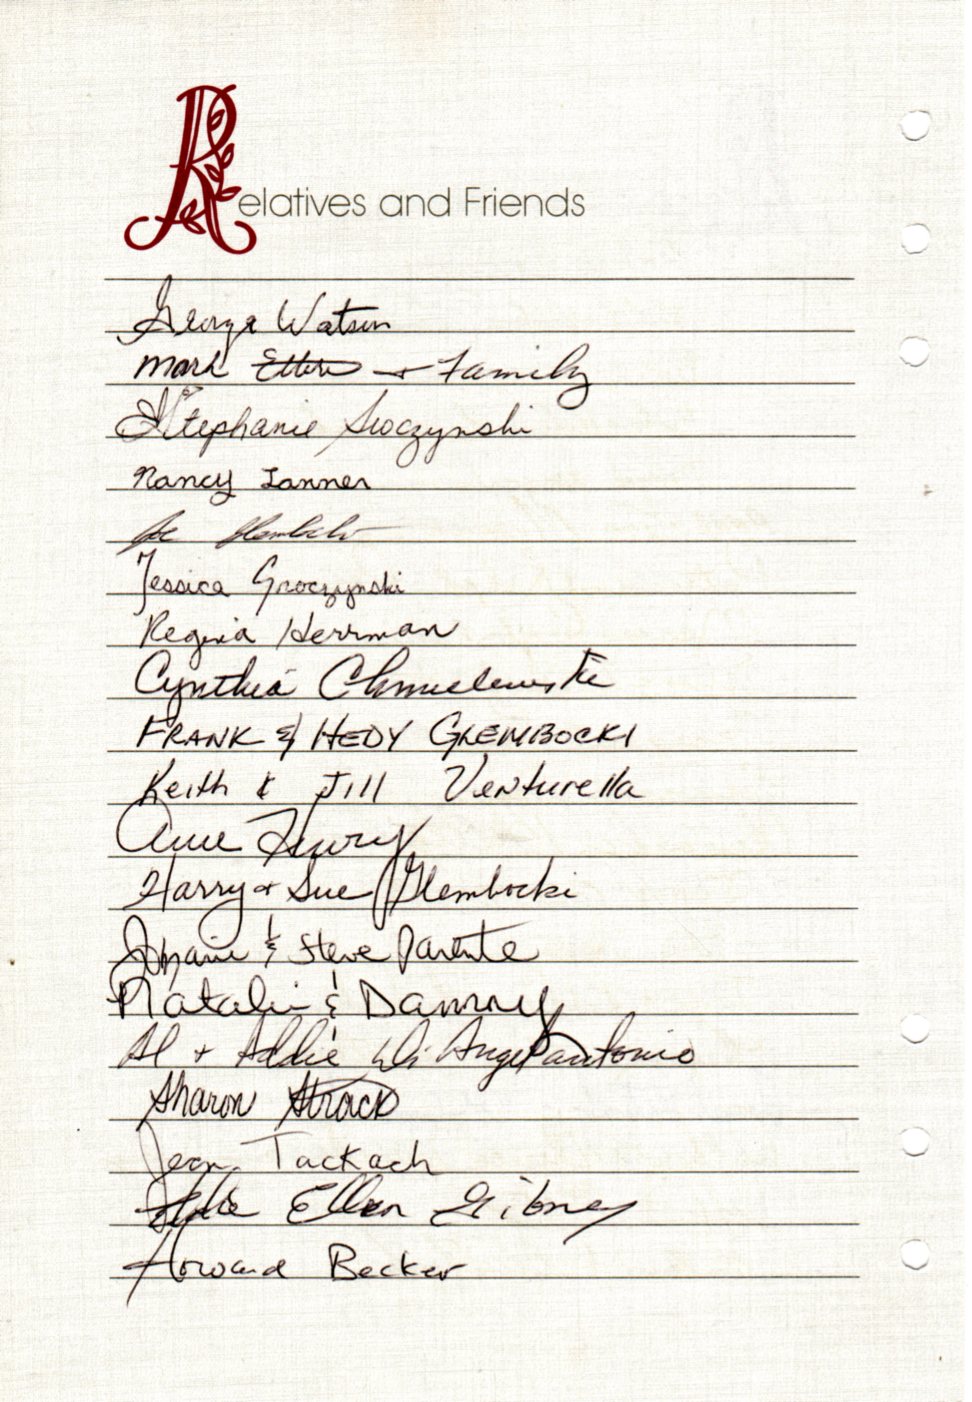 Relatives and Friends
George Watson
Mark Etter + Family
Stephanie Groczynski
Nancy Lanner
Joe Glembocki
Jessica Groczynski
Regina Herrman
Cynthia Chmielewski
FRANK & HEDY GLEMBOCKI
Keith & Jill Venturella
Anne
Harry + Sue Glembocki
& Steve Parente
Natalie & Danny
Al + Addie Di Angelantonio
Sharon Strack
Jean Tackach
Ellen Gibney
Howard Becker